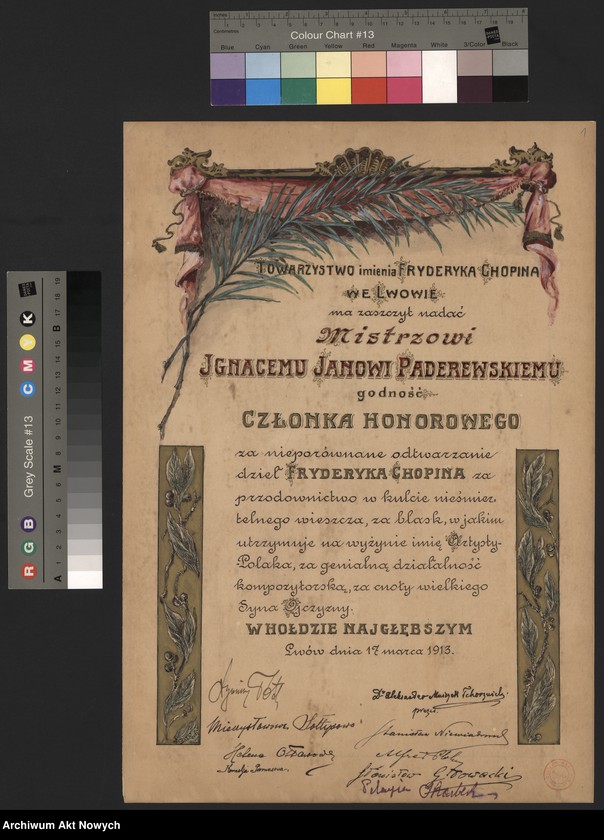 Inches
Centimetres
Colour Chart #13
Blue Cyan Green Yellow Red Magenta White 3/Color Black
Grey Scale #13
R G B C M Y K
A 1 2 3 4 5 6 M 8 9 10 11 12 13 14 15 B 17 18 19
1
TOWARZYSTWO imienia FRYDERYKA CHOPINA
WE LWOWIE
ma zaszczyt nadać
Mistrzowi
JGNACEMU JANOWI PADEREWSKIEMU
godność
CZŁONKA HONOROWEGO
za nieporównane odtwarzanie
dzieł FRYDERYKA CHOPINA za
przodownictwo w kulcie nieśmier,
telnego wieszcza, za blask, w jakim
utrzymuje na wyżynie imię Artysty-
Polaka, za genialną działalność
kompozytorską, za cnoty wielkiego
Syna Ojczyzny.
W HOŁDZIE NAJGŁĘBSZYM
Lwów dnia 17 marca 1913.
Dr Aleksander
prezes.
Helena
Stanisław
Alfred
Stanisław Głowacki
Archiwum Akt Nowych